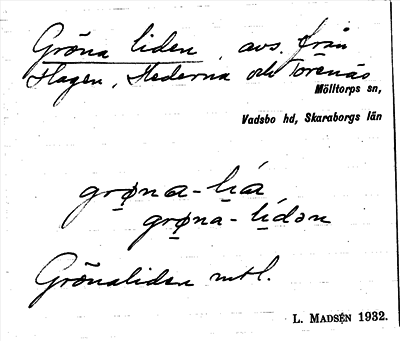 Gröna liden, avs. från
Hagen, Hederna och Torenäs
Mölltorps sn,
Vadsbo hd, Skaraborgs län
grø̱na-ḻia
grø̱na-ḻídən
Grönaliden mtl.
L. MADSÉN 1932.